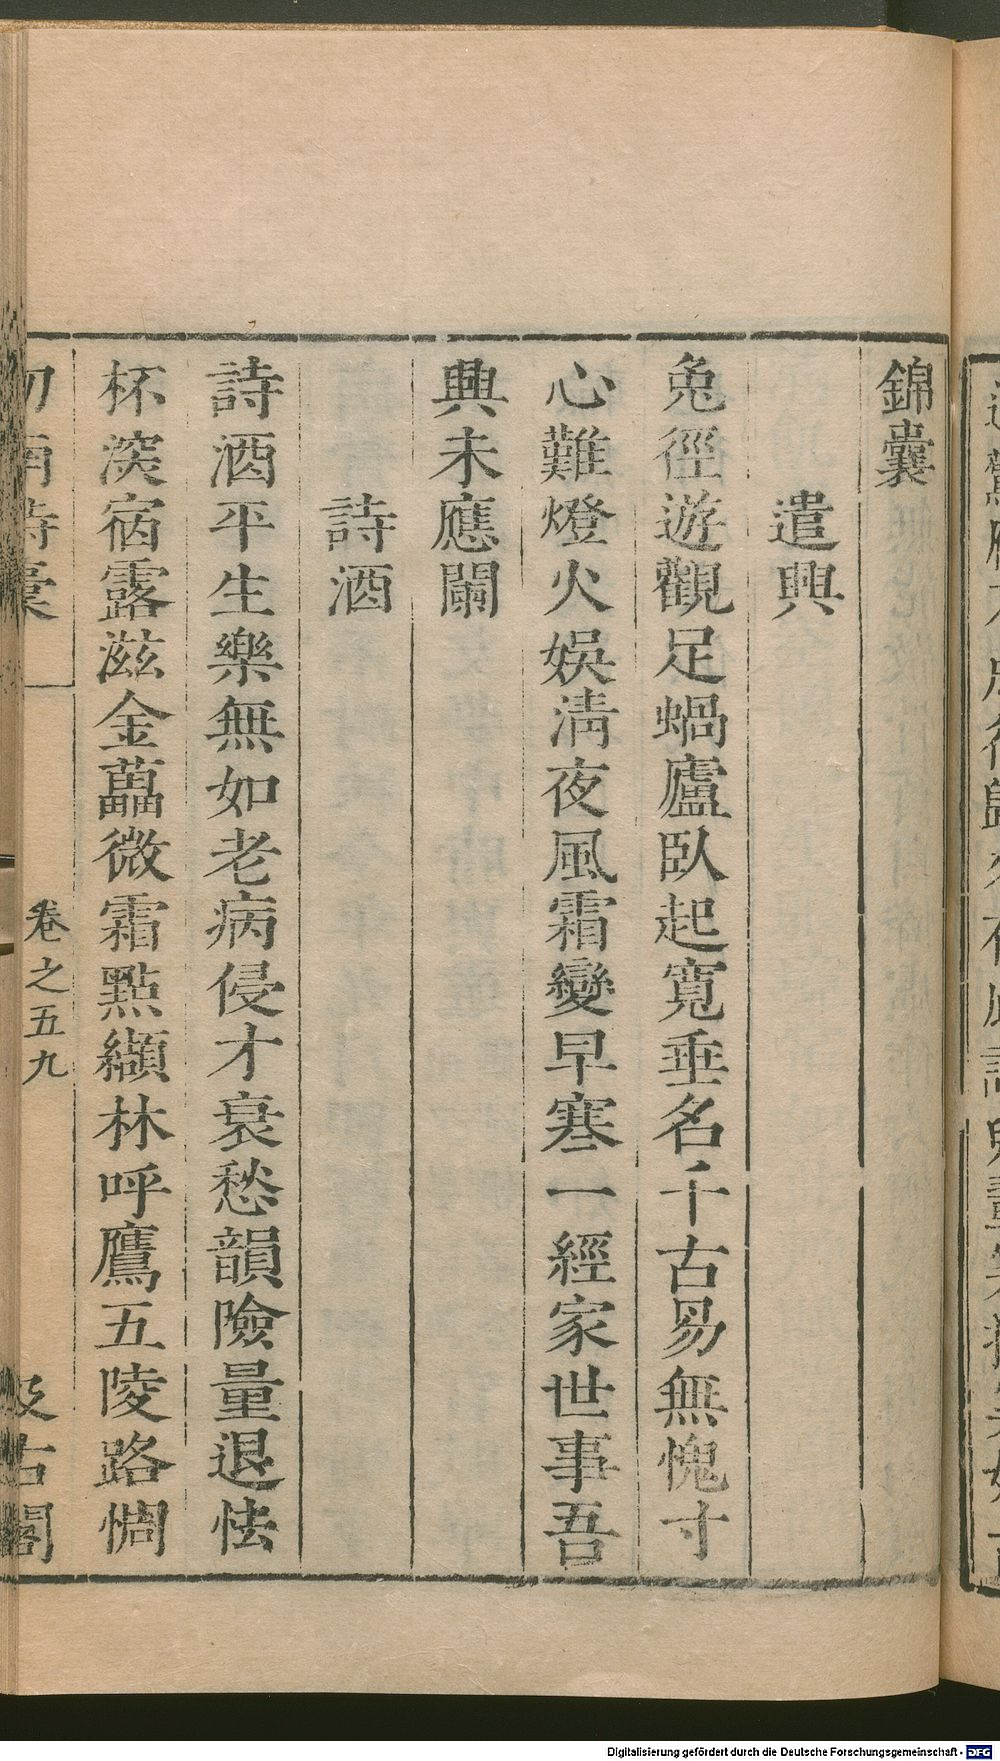 錦囊
遣興
兔徑遊觀足蝸廬臥起寬垂名千古易無愧寸
心難燈火娛淸夜風霜變早寒一經家世事吾
興未應闌
詩酒
詩酒平生樂無如老病侵才衰愁韻險量退怯
杯深宿露滋金藟微霜點纈林呼鷹五陵路惆
卷之五九
汲古閣
Digitalisierung gefördert durch die Deutsche Forschungsgemeinschaft - DFG